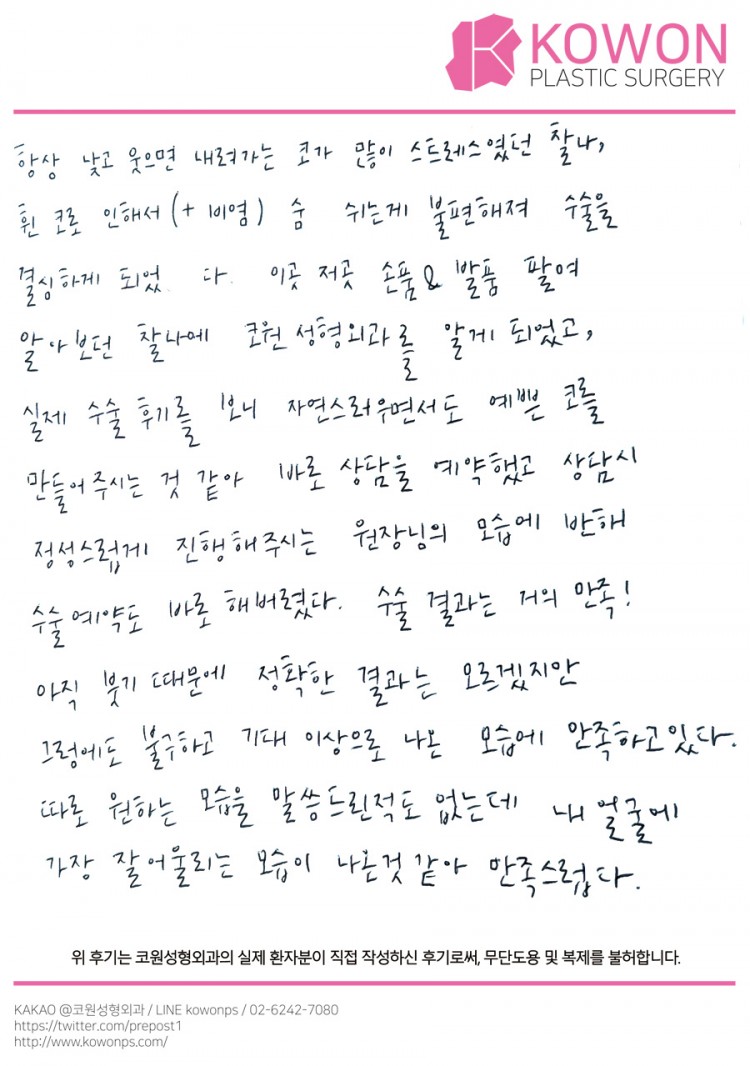 KOWON
PLASTIC SURGERY
항상 낮고 웃으면 내려가는 코가 많이 스트레스였던 찰나,
휜 코로 인해서 (+ 비염) 숨 쉬는게 불편해져 수술을
결심하게 되었다. 이곳 저곳 손품 & 발품 팔여
알아보던 찰나에 코원 성형외과를 알게 되었고,
실제 수술 후기를 보니 자연스러우면서도 예쁜 코를
만들어주시는 것 같아 바로 상담을 예약했고 상담시
정성스럽게 진행해주시는 원장님의 모습에 반해
수술예약도 바로 해버렸다. 수술 결과는 거의 만족!
아직 붓기 때문에 정확한 결과는 모르겠지만
그럼에도 불구하고 기대 이상으로 나온 모습에 만족하고있다.
따로 원하는 모습을 말씀드린적도 없는데 내 얼굴에
가장 잘어울리는 모습이 나온것 같아 만족스럽다.
위 후기는 코원성형외과의 실제 환자분이 직접 작성하신 후기로써, 무단도용 및 복제를 불허합니다.
KAKAO @코원성형외과 / LINE kowonps / 02-6242-7080
https://twitter.com/prepost1
http://www.kowonps.com/